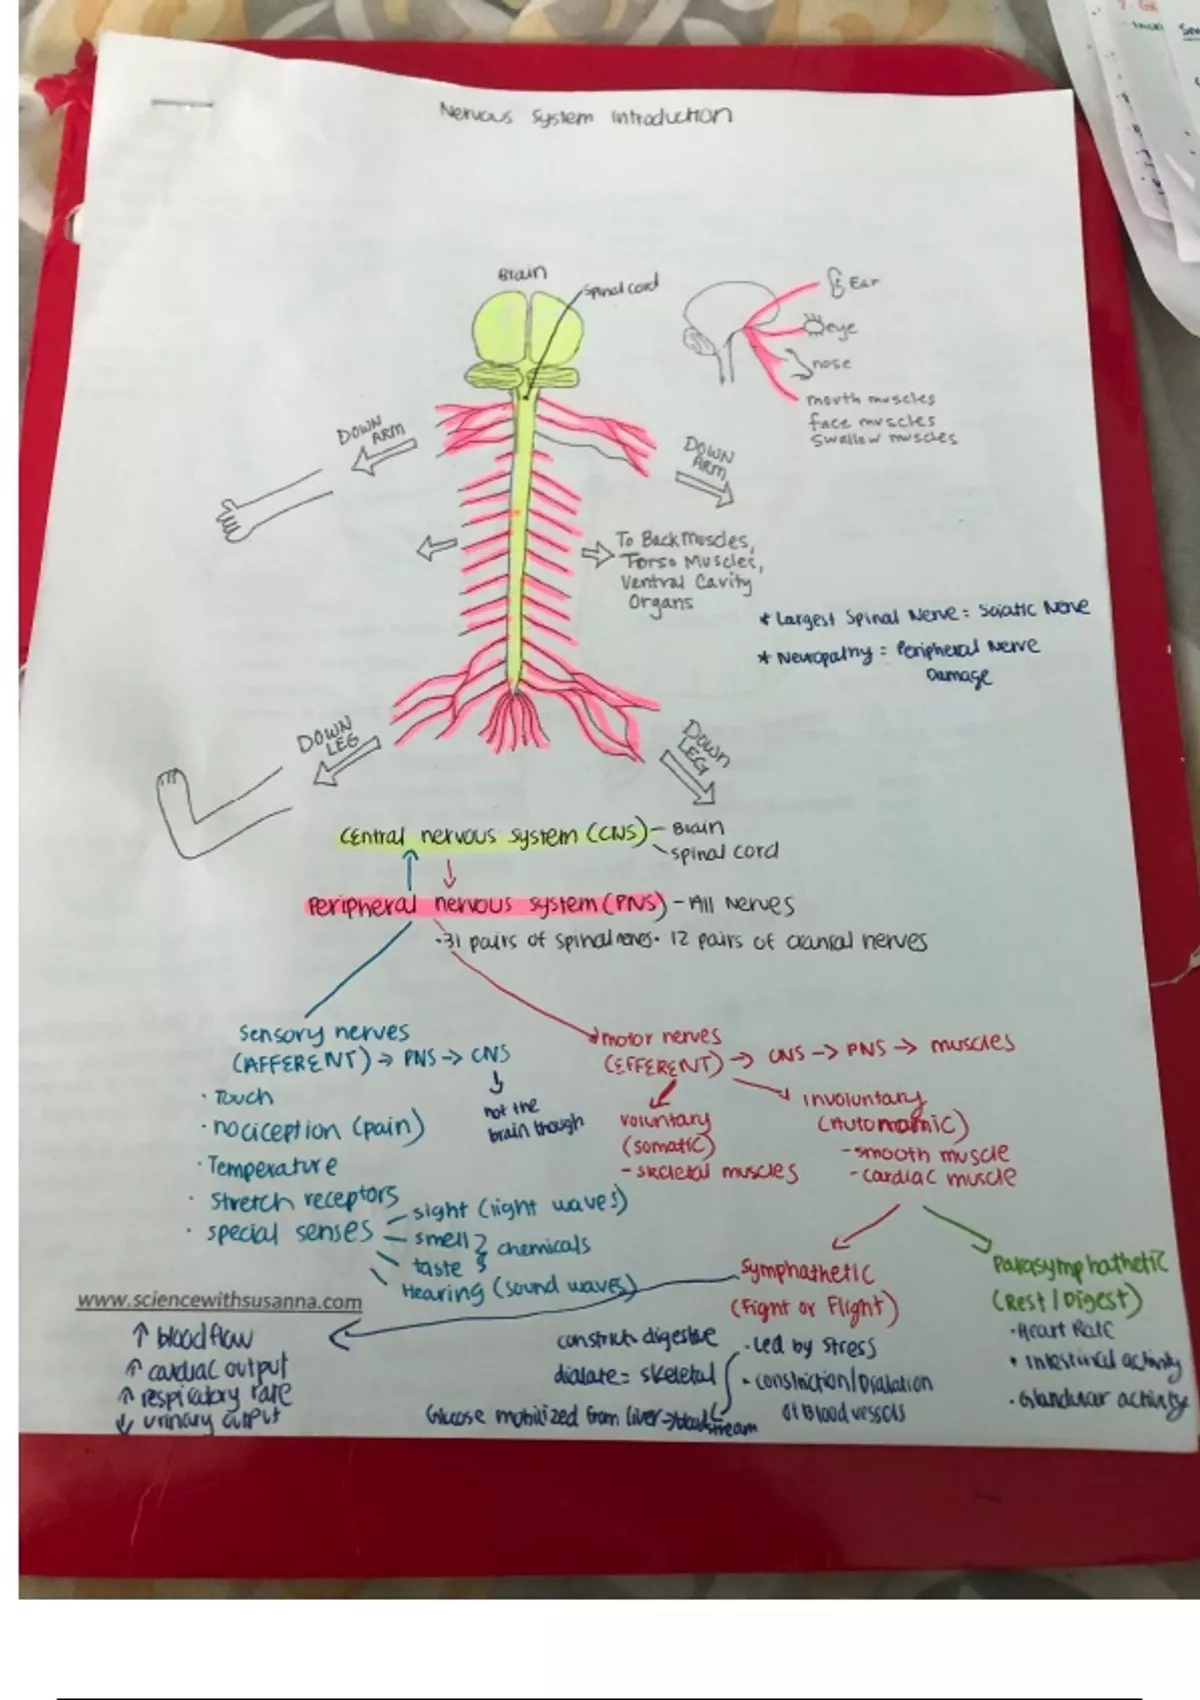 Nervous System Introduction
Brain
spinal cord
Ear
eye
nose
mouth muscles
face muscles
Swallow muscles
DOWN
ARM
DOWN
ARM
To Back Muscles,
Torso Muscles,
Ventral Cavity
Organs
* Largest Spinal Nerve = Sciatic Nerve
* Neuropathy = Peripheral Nerve
Damage
DOWN
LEG
DOWN
LEG
Central nervous system (CNS) - Brain
spinal cord
Peripheral nervous system (PNS) - All Nerves
·31 pairs of spinal nerves· 12 pairs of cranial nerves
sensory nerves
(AFFERENT) → PNS → CNS
not the
brain though
· Touch
· nociception (pain)
· Temperature
· stretch receptors
· special senses
sight (light waves)
smell
taste
chemicals
Hearing (sound waves)
motor nerves
(EFFERENT) → CNS → PNS → muscles
voluntary
(somatic)
- skeletal muscles
involuntary
(Automamic)
- smooth muscle
- cardiac muscle
symphathetic
(Fight or Flight)
· Led by stress
· constriction/Dialation
of Blood vessels
constrict= digestive
dialate= skeletal
Glucose mobilized from liver→bloodstream
Parasymphathetic
(Rest/Digest)
·Heart Rate
· Intestinal activity
· Glandular activity
www.sciencewithsusanna.com
↑ blood flow
↑ cardiac output
↑ respiratory rate
↓ urinary output